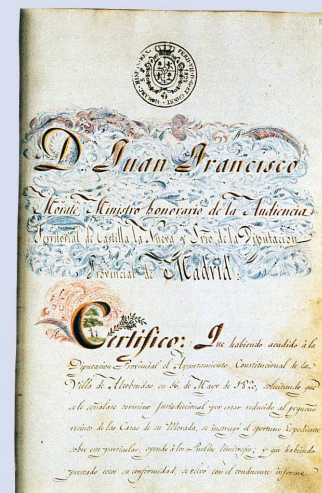 D. Juan Francisco
Morate, Ministro honorario de la Audiencia
Territorial de Castilla la Nueva y Srio. de la Diputacion
Provincial de Madrid.
Certifico: Que habiendo acudido á la
Diputacion Provincial el Ayuntamiento Constitucional de la
Villa de Alcobendas en 16 de Mayo de 1820, solicitando que
se le señalase termino jurisdiccional por estar reducido al pequeño
recinto de las Casas de su Morada, se instruyó el oportuno Expediente
sobre este particular, oyendo á los Pueblos limitrofes, y que habiendo
prestado estos su conformidad, se elevó con el conducente informe